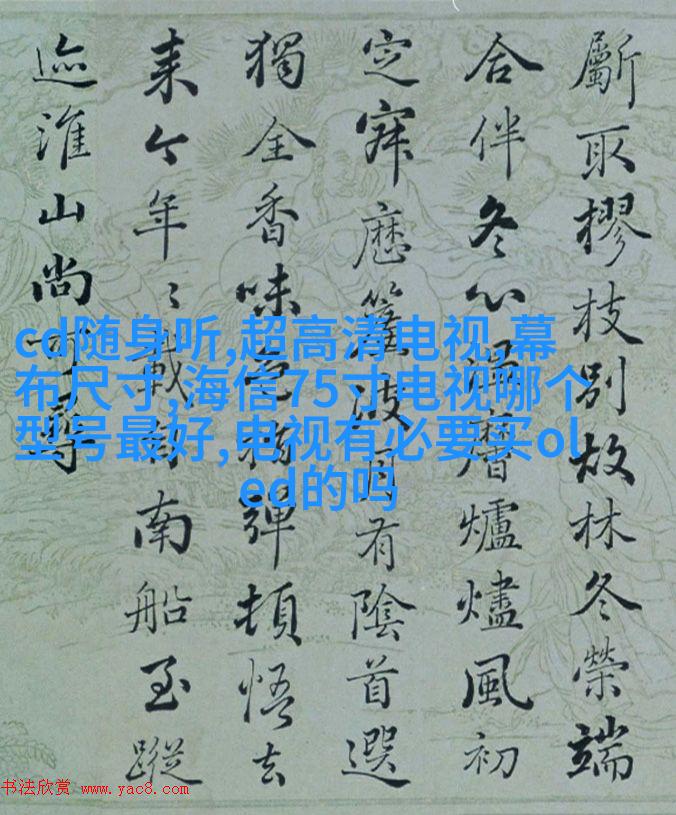 斸取樛枝別故林冬榮端
合伴冬心爐燼風初
定寐月有陰首選
獨全香味彈頓悟去
来今年〻載有南船至蹤
迹淮山尚可尋
cd随身听,超高清电视,幕
布尺寸,海信75寸电视哪个
型号最好,电视有必要买ol
ed的吗
书法欣赏 www.yac8.com